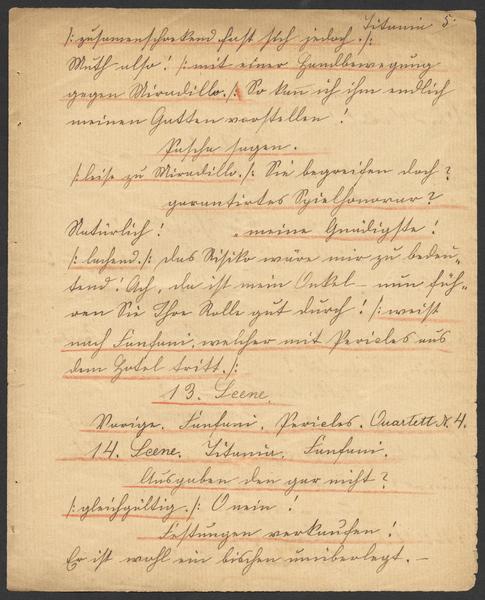 Titania 5.
/: zusamenschreckend fast sich jedoch. :/
Muth also! /: mit einer Handbewegung
gegen Miradillo. :/ So kan ich ihm endlich
meinen Gatten vorstellen!
Pascha sagen.
/: leise zu Miradillo. :/ Sie begreifen doch?
garantirtes Spielhonorar?
Natürlich! meine Gnädigste!
/: lachend. :/ das Risiko wäre mir zu bedeu-
tend! Ach, da ist mein Onkel – nun füh-
ren Sie Ihre Rolle gut durch! /: weist
nach Fanfani, welcher mit Pericles aus
dem Hotel tritt. :/
13. Scene.
Vorige. Fanfani. Pericles. Quartett N. 4.
14. Scene. Titania. Fanfani.
Ausgaben den gar nicht?
/: gleichgültig. :/ O nein!
Festungen verkaufen!
Er ist wohl ein bischen unüberlegt. –